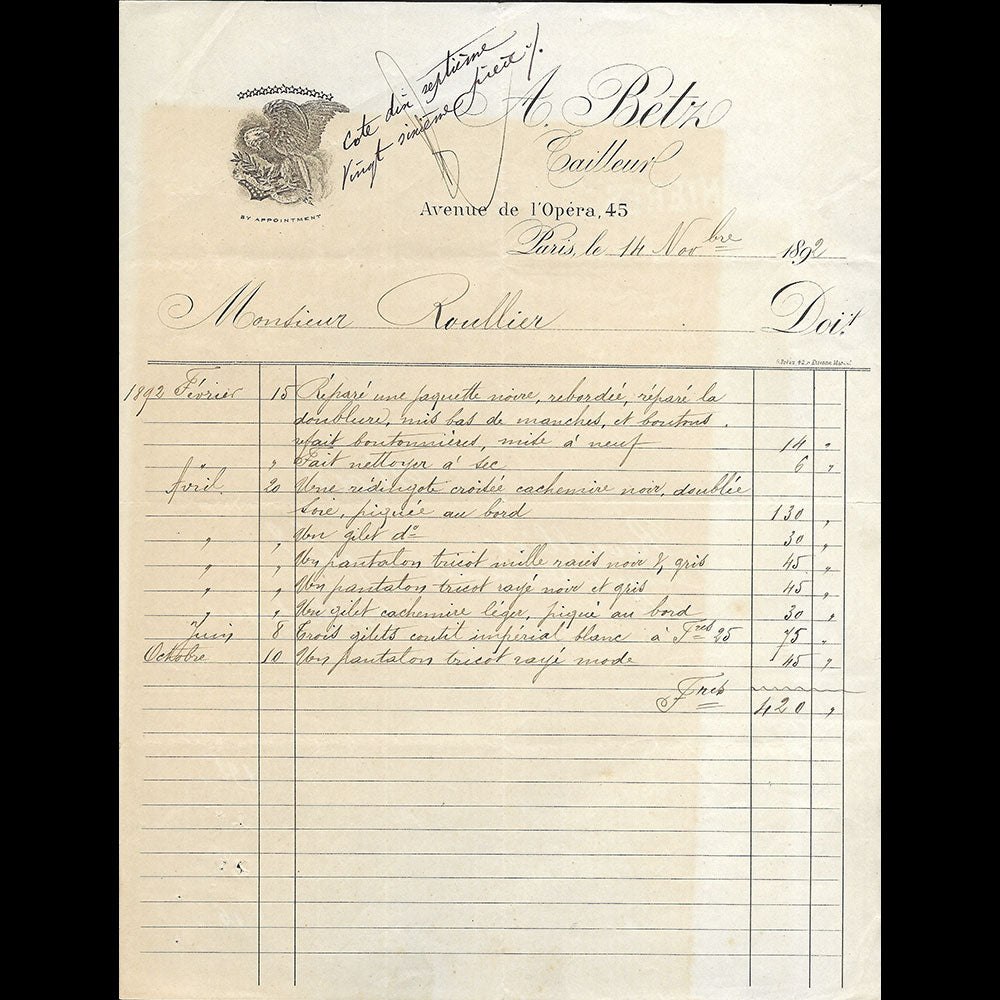 cote dix septième
Vingt sixième pièce /.
A. Betz
Tailleur
BY APPOINTMENT
Avenue de l'Opéra, 45
Paris, le 14 Novbre 1892
Monsieur Roullier Doit
1892 Février 15 Réparé une jaquette noire, rebordée, réparé la
doublure, mis bas de manches, et boutons,
refait boutonnières, mise à neuf 14 "
" " Fait nettoyer à sec 6 "
Avril 20 Une rédingote croisée cachemire noir, doublée
soie, piquée au bord 130 "
" " Un gilet do 30 "
" " Un pantalon tricot mille raies noir & gris 45 "
" " Un pantalon tricot rayé noir et gris 45 "
" " Un gilet cachemire léger, piqué au bord 30 "
Juin 8 Trois gilets coutil impérial blanc à Frcs 25 75 "
Octobre 10 Un pantalon tricot rayé mode 45 "
Frcs 420 "